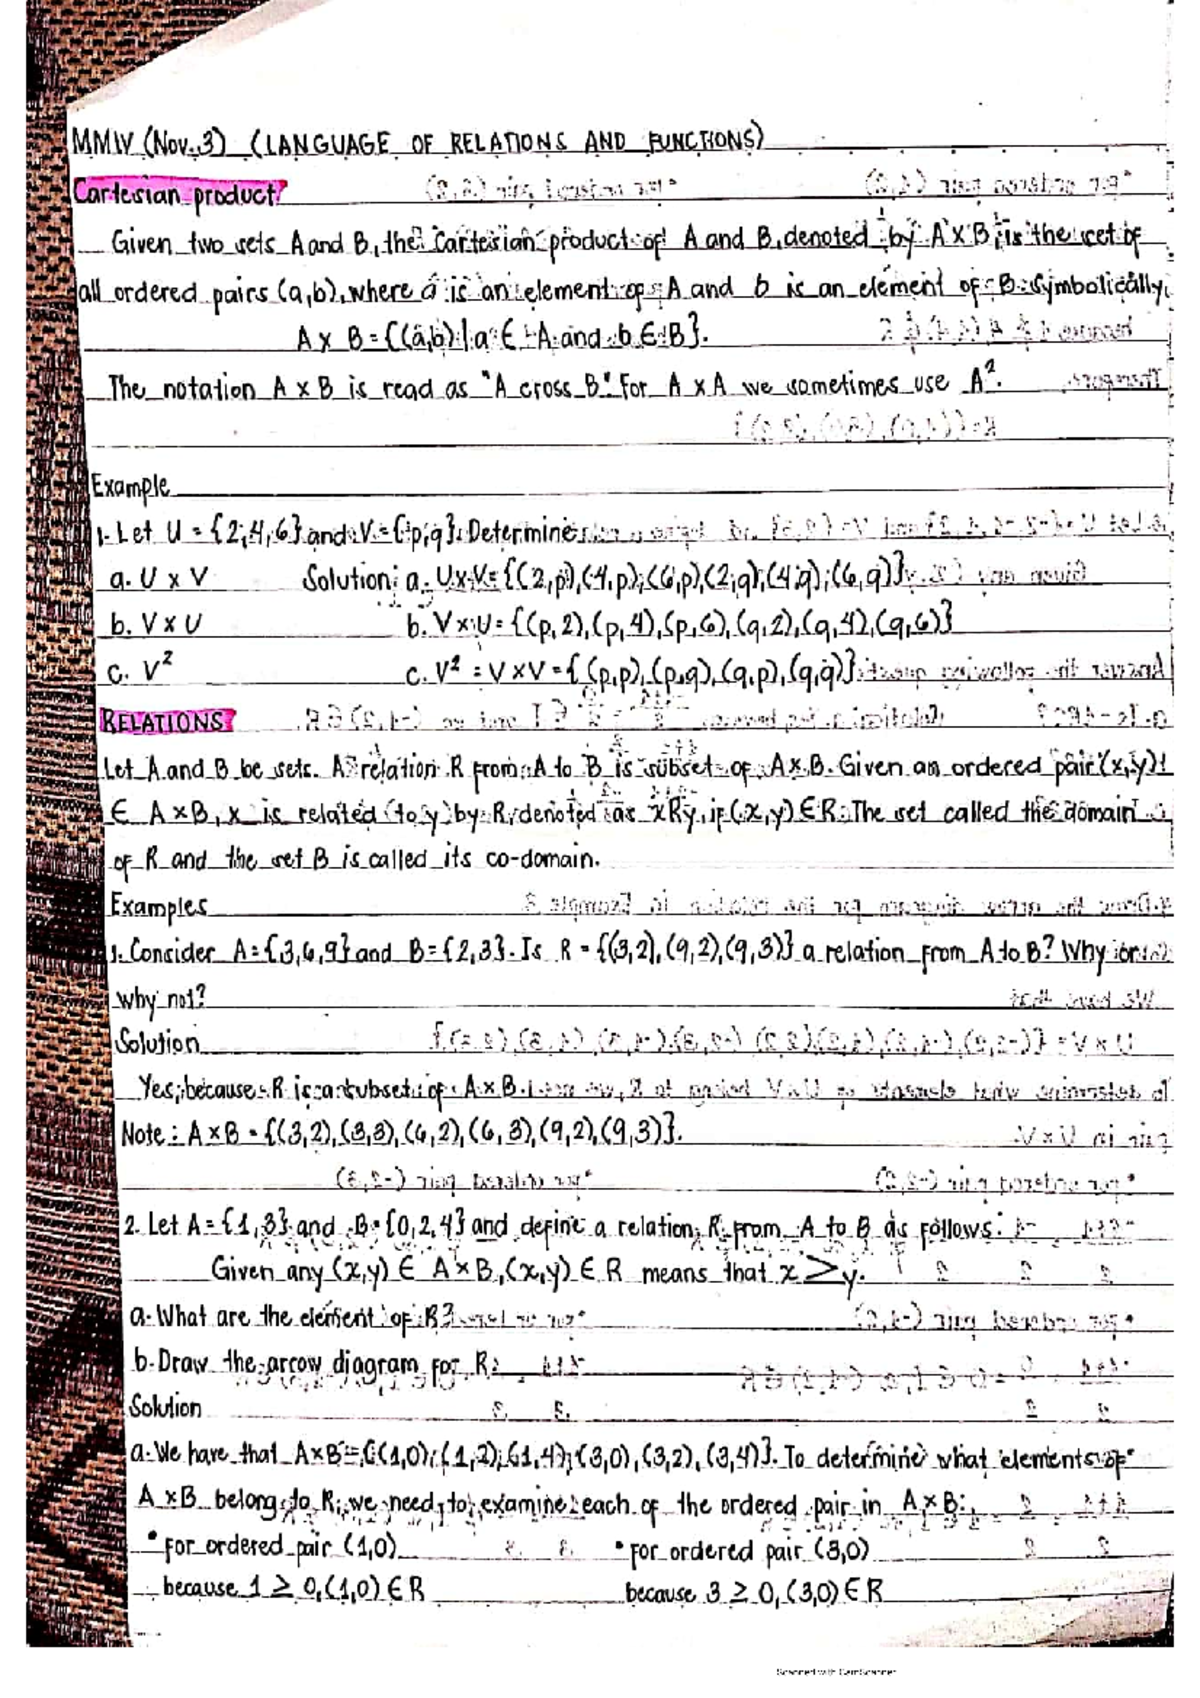 MMW (Nov. 3) (LANGUAGE OF RELATIONS AND FUNCTIONS)
Cartesian product
Given two sets A and B, the Cartesian product of A and B, denoted by A x B, is the set of
all ordered pairs (a,b), where a is an element of A and b is an element of B. Symbolically,
A x B = {(a,b) | a ∈ A and b ∈ B}.
The notation A x B is read as "A cross B". For A x A we sometimes use A².
Example
1. Let U = {2,4,6} and V = {p,q}. Determine
a. U x V Solution: a. U x V = {(2,p),(4,p),(6,p),(2,q),(4,q),(6,q)}
b. V x U b. V x U = {(p,2),(p,4),(p,6),(q,2),(q,4),(q,6)}
c. V² c. V² = V x V = {(p,p),(p,q),(q,p),(q,q)}
RELATIONS
Let A and B be sets. A relation R from A to B is subset of A x B. Given an ordered pair (x,y)
∈ A x B, x is related to y by R, denoted as xRy, if (x,y) ∈ R. The set called the domain
of R and the set B is called its co-domain.
Examples
1. Consider A = {3,6,9} and B = {2,3}. Is R = {(3,2),(9,2),(9,3)} a relation from A to B? Why or
why not?
Solution
Yes, because R is a subset of A x B.
Note: A x B = {(3,2),(3,3),(6,2),(6,3),(9,2),(9,3)}.
2. Let A = {1,3} and B = {0,2,4} and define a relation R from A to B as follows:
Given any (x,y) ∈ A x B, (x,y) ∈ R means that x ≥ y.
a. What are the element of R?
b. Draw the arrow diagram for R.
Solution
a. We have that A x B = {(1,0),(1,2),(1,4),(3,0),(3,2),(3,4)}. To determine what elements of
A x B belong to R, we need to examine each of the ordered pair in A x B:
• for ordered pair (1,0) • for ordered pair (3,0)
because 1 ≥ 0, (1,0) ∈ R because 3 ≥ 0, (3,0) ∈ R
Scanned with CamScanner